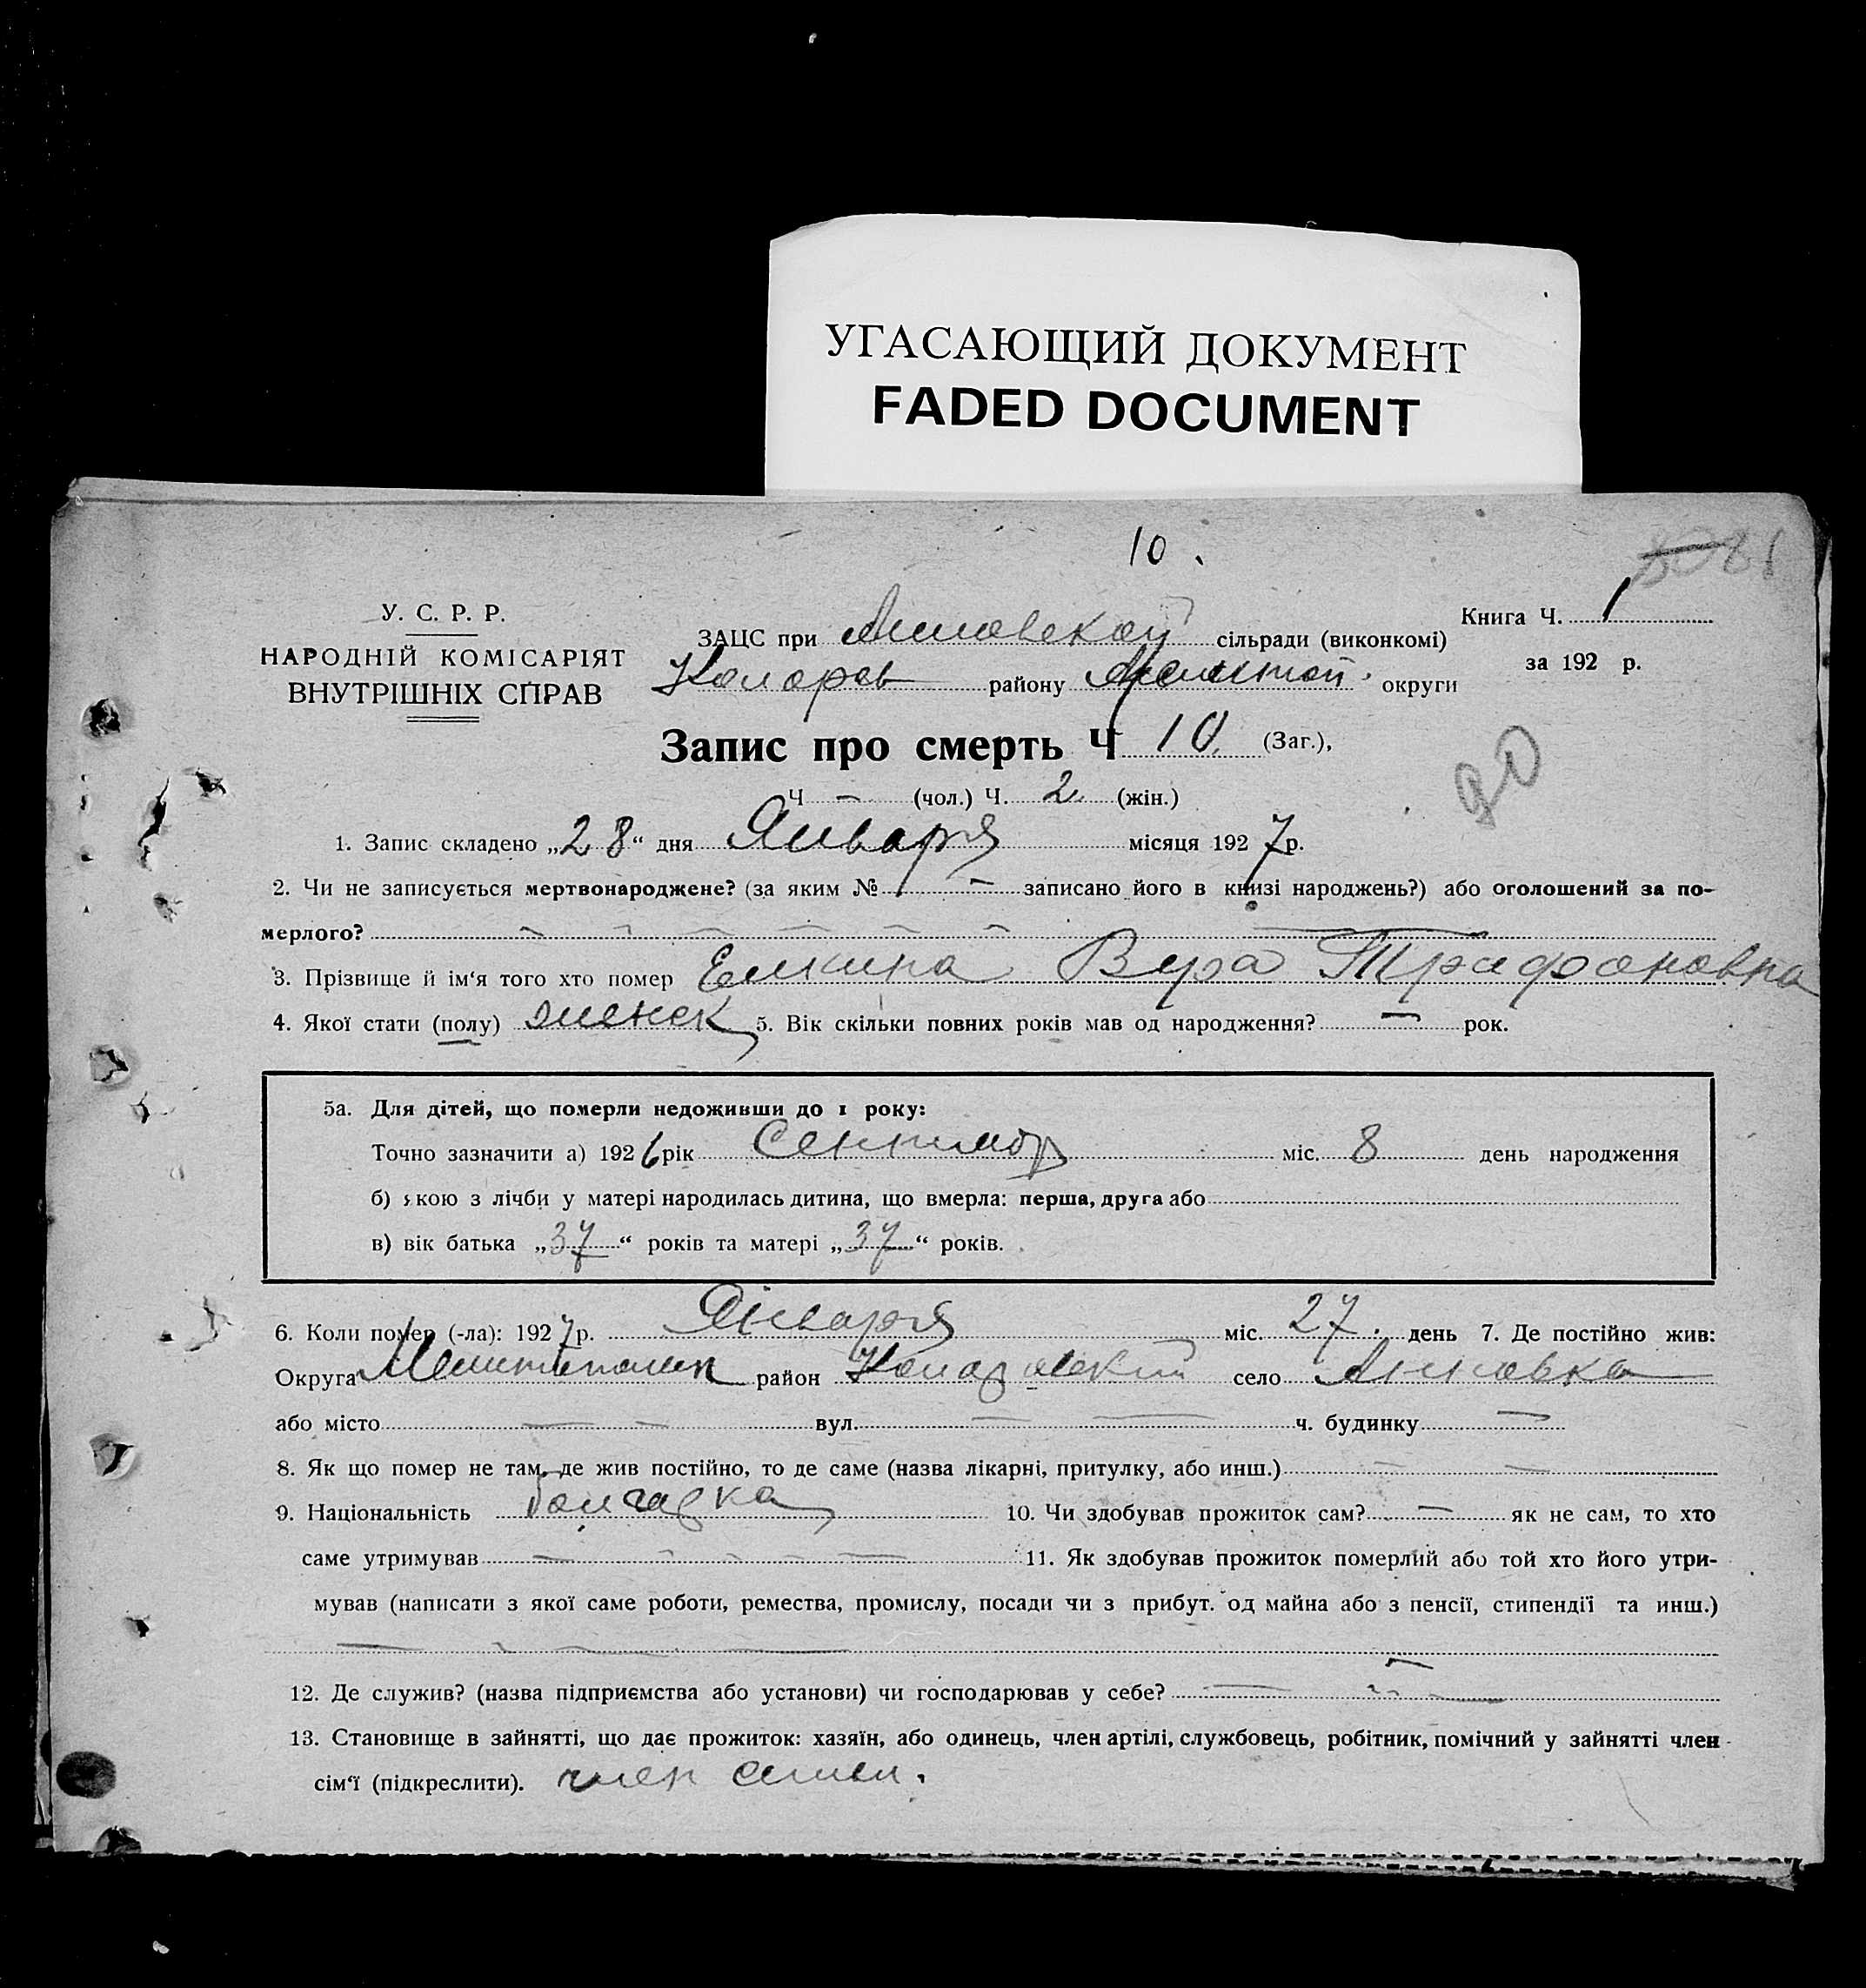 УГАСАЮЩИЙ ДОКУМЕНТ
FADED DOCUMENT
10.
81
У. С. Р. Р.
НАРОДНІЙ КОМІСАРІЯТ
ВНУТРІШНІХ СПРАВ
Книга Ч. 1
за 192 р.
ЗАЦС при Анновской сільради (виконкомі)
Коларов району Мелитоп. округи
Запис про смерть Ч 10. (Заг.),
Ч — (чол.) Ч. 2 (жін.)
90
1. Запис складено „28“ дня Января місяця 1927 р.
2. Чи не записується мертвонароджене? (за яким № — записано його в книзі народжень?) або оголошений за по-
мерлого? — — — — — —
3. Прізвище й ім‘я того хто помер Елкина Вера Трифоновна
4. Якої стати (полу) женск 5. Вік скільки повних років мав од народження? — рок.
5а. Для дітей, що померли недоживши до 1 року:
Точно зазначити а) 1926 рік Сентябр міс. 8 день народження
б) якою з лічби у матері народилась дитина, що вмерла: перша, друга або
в) вік батька „37“ років та матері „37“ років.
6. Коли помер (-ла): 1927 р. Января міс. 27. день 7. Де постійно жив:
Округа район Коларовский село Анновка
або місто — — вул. — — ч. будинку —
8. Як що помер не там, де жив постійно, то де саме (назва лікарні, притулку, або инш.) — —
9. Національність болгарка 10. Чи здобував прожиток сам? — як не сам, то хто
саме утримував — — — — — 11. Як здобував прожиток померлий або той хто його утри-
мував (написати з якої саме роботи, ремества, промислу, посади чи з прибут. од майна або з пенсії, стипендії та инш.)
— — — — —
12. Де служив? (назва підприємства або установи) чи господарював у себе? — — —
13. Становище в зайнятті, що дає прожиток: хазяїн, або одинець, член артілі, службовець, робітник, помічний у зайнятті член
сім‘ї (підкреслити). член семьи.